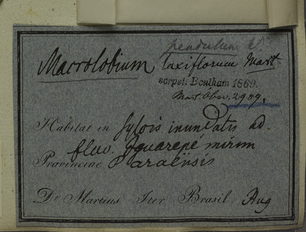 pendulum
Macrolobium laxiflorum Mart.
script: Bentham 1869.
Mart. Obser. 2989.
Habitat in sylvis inundatis ad
fluv. Yguarapé mirim
Provinciae Paraënsis
Dr Martius Iter Brasil Aug